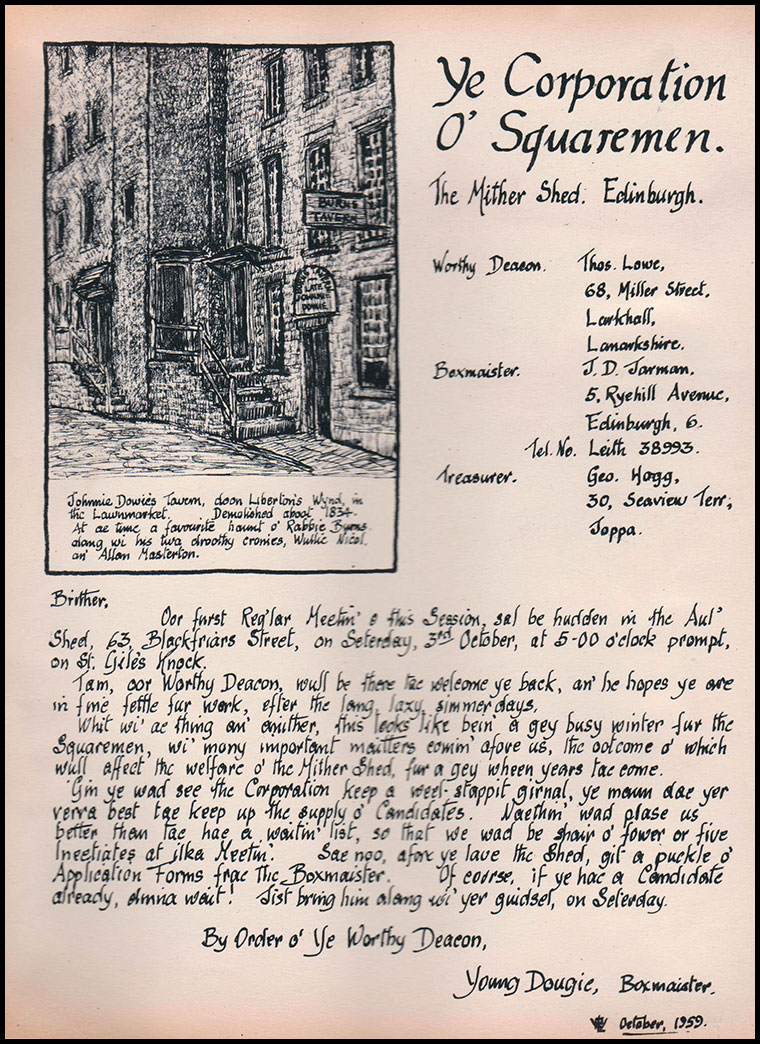 Ye Corporation
O' Squaremen.
The Mither Shed. Edinburgh.
Worthy Deacon. Thos. Lowe,
68, Miller Street,
Larkhall,
Lanarkshire.
Boxmaister. J. D. Jarman.
5, Ryehill Avenue,
Edinburgh, 6.
Tel. No. Leith 38993.
Treasurer. Geo. Hogg,
30, Seaview Terr;
Joppa.
BURNS
TAVERN
LATE
JOHNNIE
DOWIE
Johnnie Dowie's Tavern, doon Liberton's Wynd, in
the Lawnmarket. Demolished aboot 1834.
At ae time a favourite haunt o' Rabbie Burns
alang wi his twa droothy cronies, Wullie Nicol.
an' Allan Masterton.
Brither,
Oor furst Reg'lar Meetin' o this Session, sal be hudden in the Aul'
Shed, 63, Blackfriars Street, on Seterday, 3rd October, at 5-00 o'clock prompt,
on St. Gile's Knock.
Tam, oor Worthy Deacon, wull be there tae welcome ye back, an' he hopes ye are
in fine fettle fur work, efter the lang, lazy, simmer days.
Whit wi' ae thing an' anither, this looks like bein' a gey busy winter fur the
Squaremen, wi' mony important maitters comin' afore us, the ootcome o' which
wull affect the welfare o' the Mither Shed, fur a gey wheen years tae come.
Gin ye wad see the Corporation keep a weel-stappit girnal, ye maun dae yer
verra best tae keep up the supply o' Candidates. Naethin' wad plase us
better than tae hae a waitin' list, so that we wad be shair o' fower or five
Ineetiates at ilka Meetin'. Sae noo, afore ye lave the Shed, git a puckle o'
Application Forms frae the Boxmaister. Of course, if ye hae a Candidate
already, dinna wait! Jist bring him alang wi' yer guidsel, on Seterday.
By Order o' Ye Worthy Deacon,
Young Dougie, Boxmaister.
October, 1959.